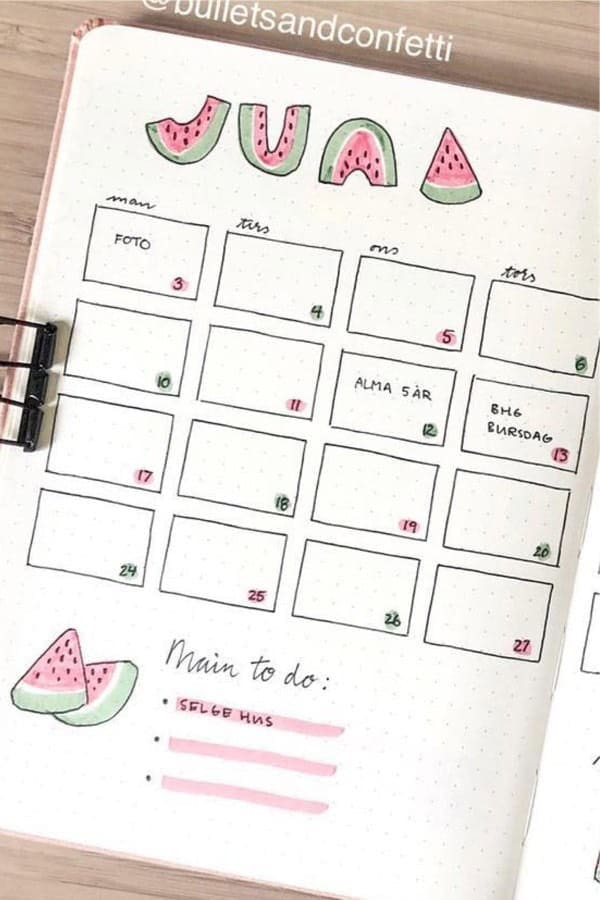 @bulletsandconfetti
JUNI
man tirs ons tors
FOTO
3 4 5 6
ALMA 5 ÅR
BHG
BURSDAG
10 11 12 13
17 18 19 20
24 25 26 27
Main to do:
• SELGE HUS
•
•